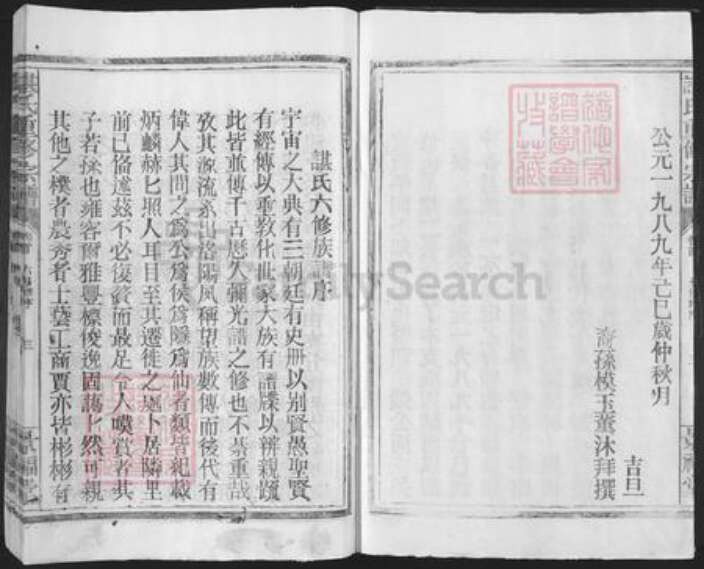 公元一九八九年己巳歲仲秋月
吉旦
裔孫模玉薰沐拜撰
諶氏六修族譜序
宇宙之大典有三朝廷有史冊以別賢愚聖賢
有經傳以重教化世家大族有譜牒以辨親疏
此皆並傳千古歷久彌光譜之修也不綦重哉
攷其源流系出洛陽風稱望族數傳而後代有
偉人其間之為公為侯為隱為仙者類皆紀載
炳麟赫匕照人耳目至其遷徙之遞卜居隣里
前已備述茲不必復贅而最足令人嘆賞者其
子若孫也雍容爾雅豐標俊逸固藹匕然可親
其他之樸者農秀者士藝工商賈亦皆彬彬有
諶氏重修宗譜
六修譜序
三
FamilySearch